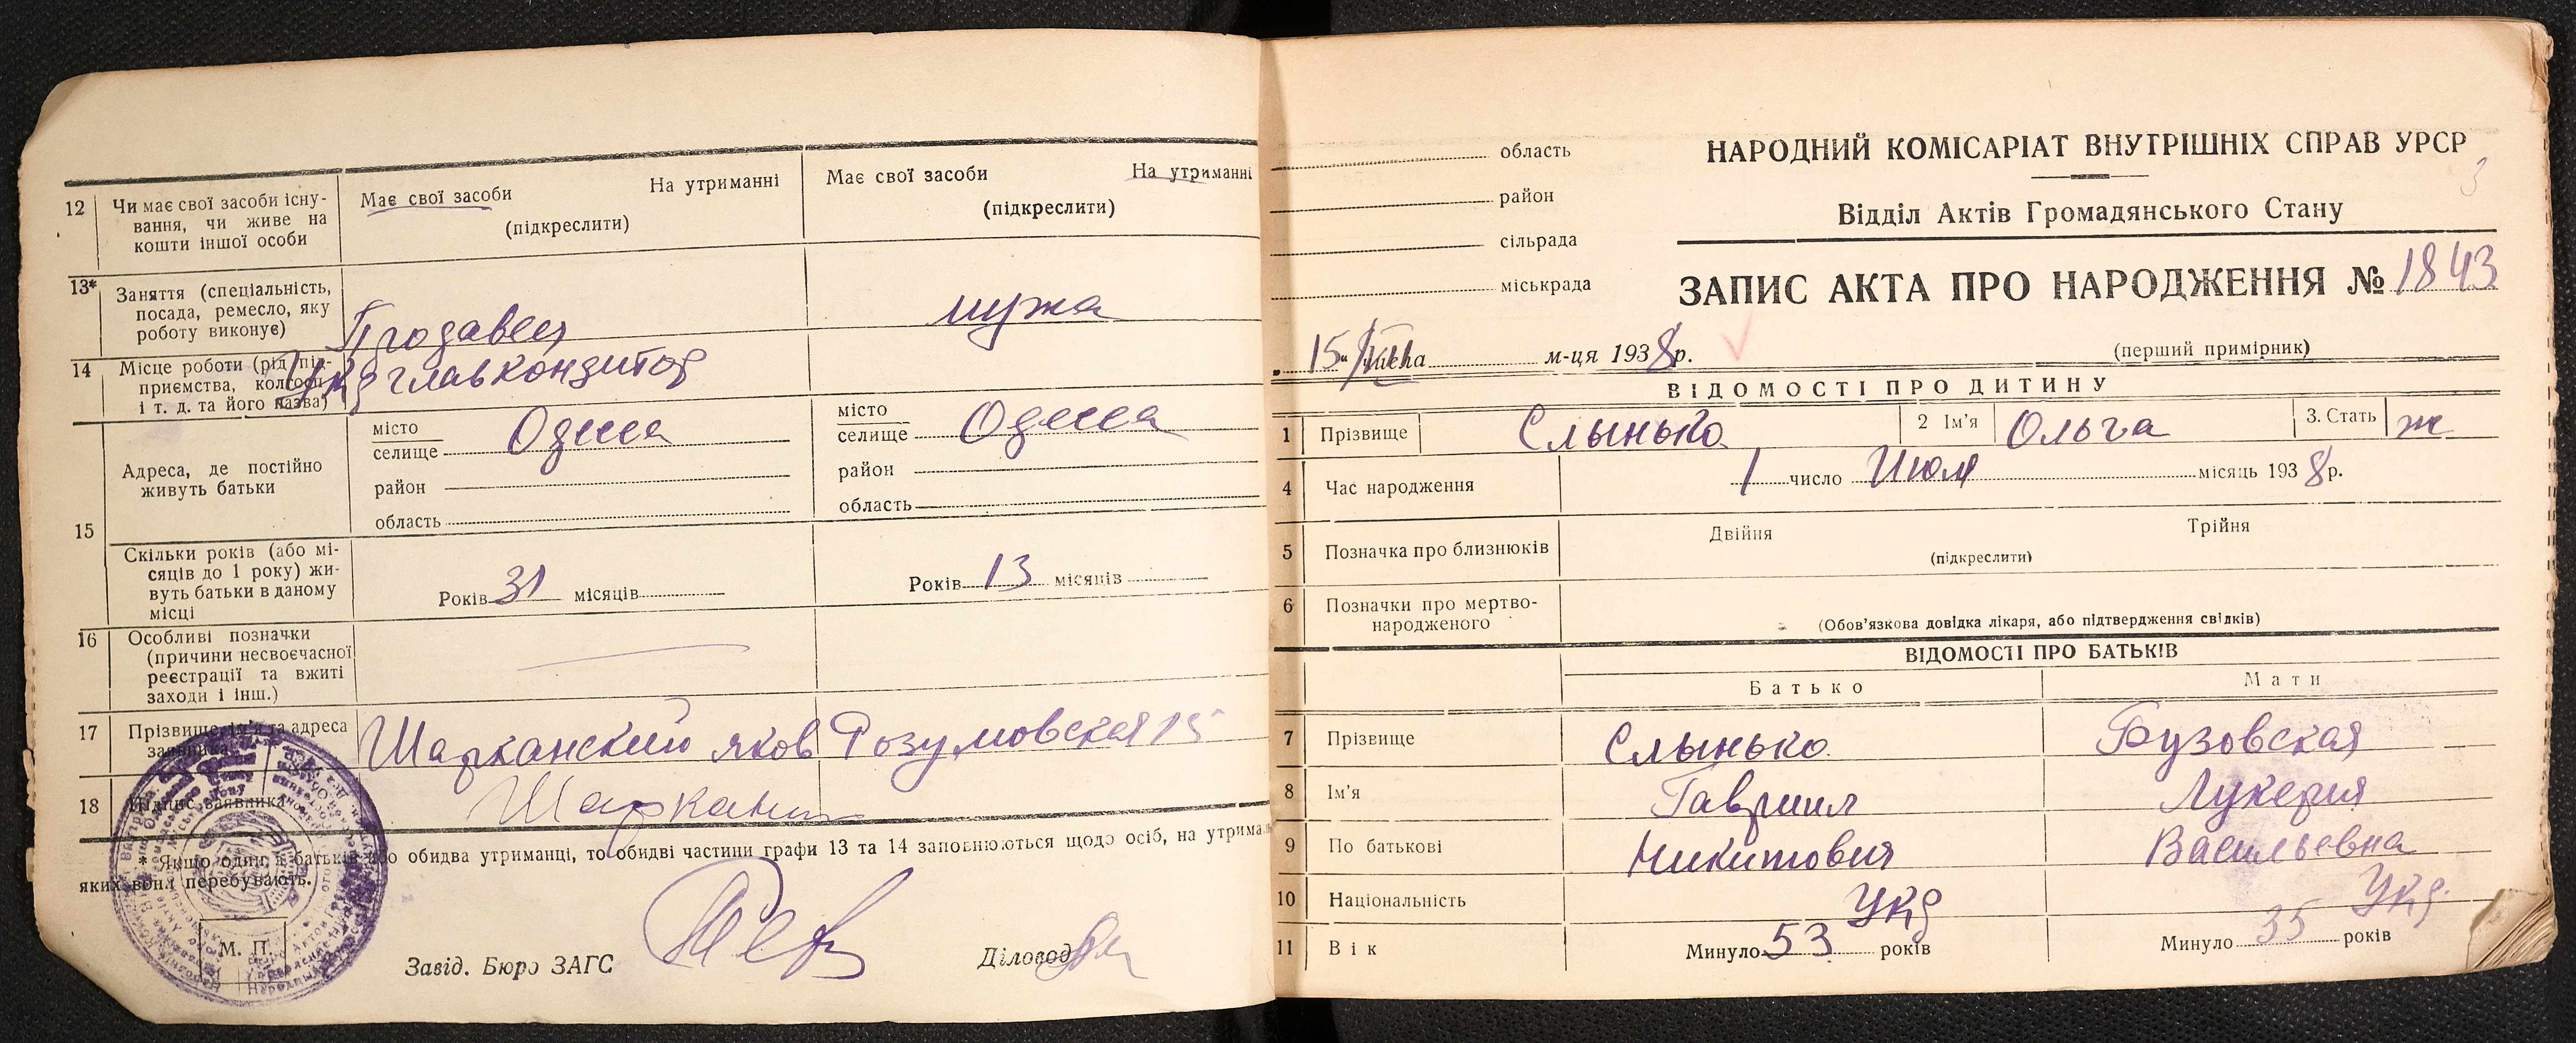 12 Чи має свої засоби існу-
вання, чи живе на
кошти іншої особи
Має свої засоби На утриманні
(підкреслити)
Має свої засоби На утриманні
(підкреслити)
13* Заняття (спеціальність,
посада, ремесло, яку
роботу виконує)
Продавец
мужа
14 Місце роботи (рід під-
приємства, колгосп
і т. д. та його назва)
Укрглавкондитор
15 Адреса, де постійно
живуть батьки
місто
селище Одесса
район
область
місто
селище Одесса
район
область
Скільки років (або мі-
сяців до 1 року) жи-
вуть батьки в даному
місці
Років 31 місяців
Років 13 місяців
16 Особливі позначки
(причини несвоєчасної
реєстрації та вжиті
заходи і інш.)
17 Прізвище, ім'я та адреса
заявника
Шарканский Яков Розумовская 15
18 Підпис заявника
Шаркан
* Якщо один з батьків або обидва утриманці, то обидві частини графи 13 та 14 заповнюються щодо осіб, на утриман
яких вони перебувають.
М. П.
Завід. Бюро ЗАГС
Діловод
область
район
сільрада
міськрада
НАРОДНИЙ КОМІСАРІАТ ВНУТРІШНІХ СПРАВ УРСР
3
Відділ Актів Громадянського Стану
ЗАПИС АКТА ПРО НАРОДЖЕННЯ № 1843
15 м-ця 1938р.
(перший примірник)
ВІДОМОСТІ ПРО ДИТИНУ
1 Прізвище Слынько 2 Ім'я Ольга 3. Стать ж
4 Час народження 1 число Июля місяць 1938р.
5 Позначка про близнюків Двійня Трійня
(підкреслити)
6 Позначки про мертво-
народженого
(Обов'язкова довідка лікаря, або підтвердження свідків)
ВІДОМОСТІ ПРО БАТЬКІВ
Батько Мати
7 Прізвище Слынько Бузовская
8 Ім'я Гавриил Лукерия
9 По батькові Никитович Васильевна
10 Національність Укр Укр
11 Вік Минуло 53 років Минуло 35 років